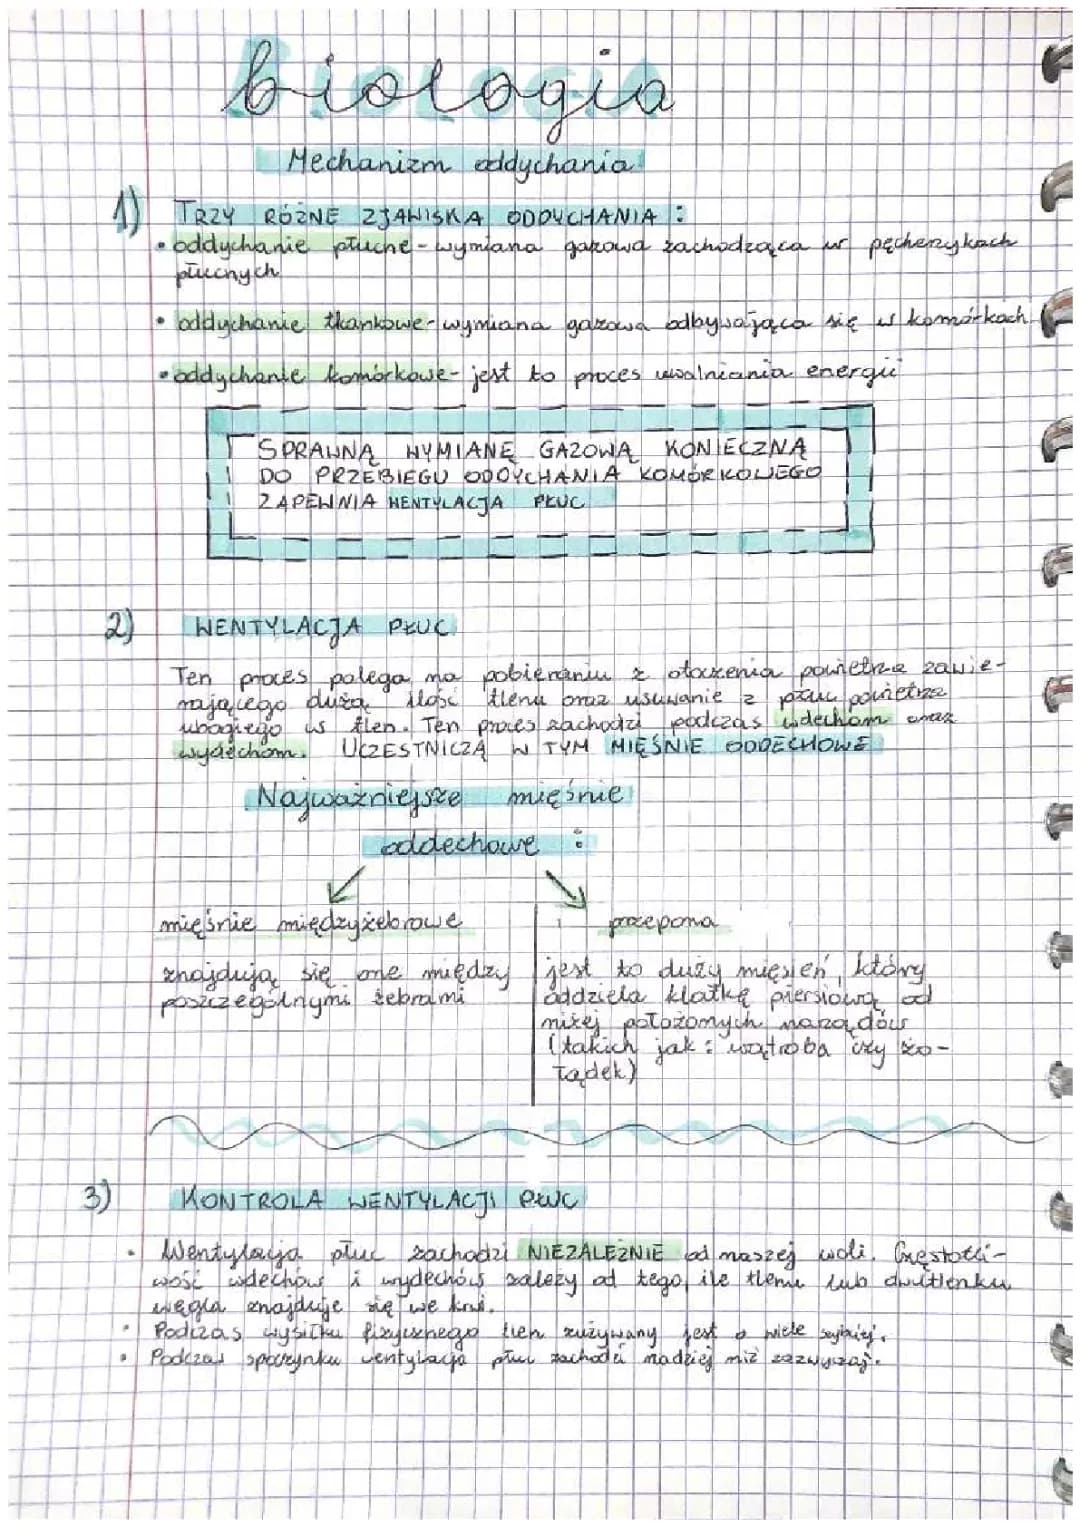 biologia
Mechanizm oddychania
1) TRZY RÓŻNE ZJAWISKA ODDYCHANIA :
• oddychanie płucne - wymiana gazowa zachodząca w pęcherzykach
płucnych
• oddychanie tkankowe - wymiana gazowa odbywająca się w komórkach
• oddychanie komórkowe - jest to proces uwalniania energii
SPRAWNĄ WYMIANĘ GAZOWĄ KONIECZNĄ
DO PRZEBIEGU ODDYCHANIA KOMÓRKOWEGO
ZAPEWNIA WENTYLACJA PŁUC
2) WENTYLACJA PŁUC
Ten proces polega na pobieraniu z otoczenia powietrza zawie-
rającego dużą ilość tlenu oraz usuwanie z płuc powietrza
ubogiego w tlen. Ten proces zachodzi podczas wdechom oraz
wydechom. UCZESTNICZĄ W TYM MIĘŚNIE ODDECHOWE
Najważniejsze mięśnie
oddechowe :
mięśnie międzyżebrowe
przepona
znajdują się one między
poszczególnymi żebrami
jest to duży mięsień, który
oddziela klatkę piersiową od
niżej położonych narządów
(takich jak : wątroba czy żo-
łądek)
3) KONTROLA WENTYLACJI PŁUC
• Wentylacja płuc zachodzi NIEZALEŻNIE od naszej woli. Częstotli-
wość wdechów i wydechów zależy od tego, ile tlenu lub dwutlenku
węgla znajduje się we krwi.
• Podczas wysiłku fizycznego tlen zużywany jest o wiele szybciej.
• Podczas spoczynku wentylacja płuc zachodzi rzadziej niż zazwyczaj.